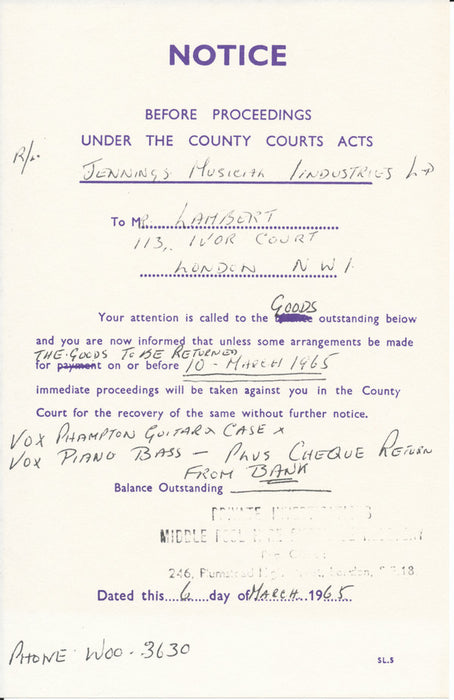 NOTICE
BEFORE PROCEEDINGS
UNDER THE COUNTY COURTS ACTS
R/L.
JENNINGS MUSICIAL INDUSTRIES LTD
To Mr. LAMBERT
113, IVOR COURT
LONDON N W 1.
GOODS
Your attention is called to the outstanding below
and you are now informed that unless some arrangements be made
THE GOODS TO BE RETURNED
for payment on or before 10 - MARCH 1965
immediate proceedings will be taken against you in the County
Court for the recovery of the same without further notice.
VOX PHAMPTON GUITAR & CASE x
VOX PIANO BASS - PLUS CHEQUE RETURN
FROM BANK
Balance Outstanding
PRIVATE
MIDDLE
246, Plumstead High London, S.E.18
Dated this 6 day of MARCH 1965
PHONE WOO - 3630
SL.5